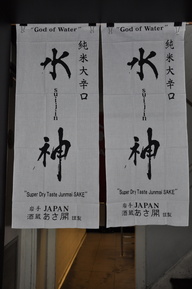 "God of Water"
純米大辛口
水神
suijin
"Super Dry Taste Junmai SAKE"
岩手 JAPAN
酒蔵 あさ開 謹製
"God of Water"
純米大辛口
水神
suijin
"Super Dry Taste Junmai SAKE"
岩手 JAPAN
酒蔵 あさ開 謹製